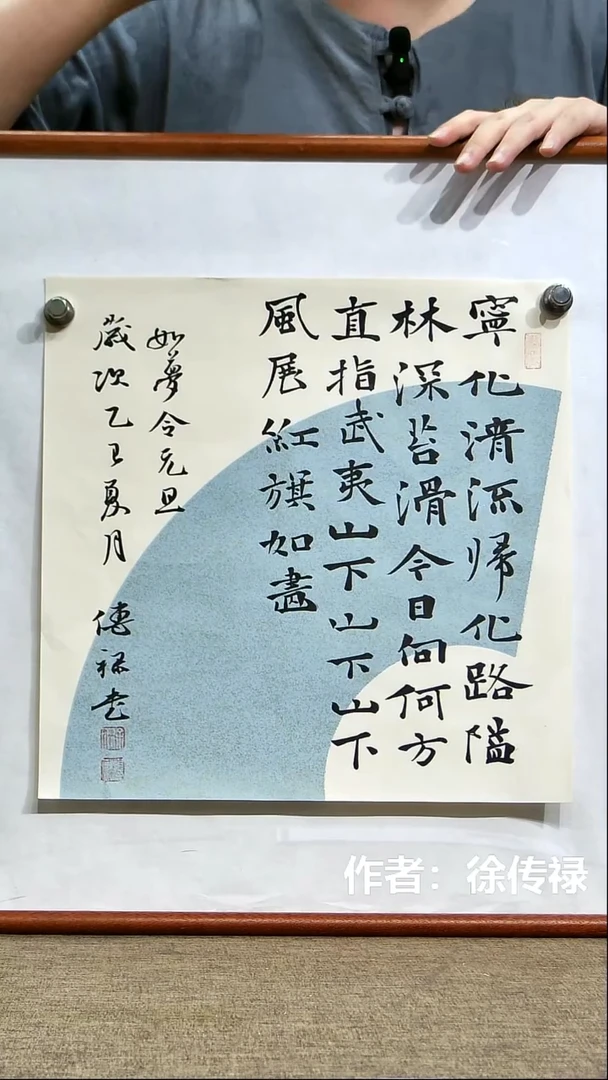 寧化清流帰化路隘
林深苔滑今日向何方
直指武夷山下山下山下
風展紅旗如畫
如夢令元旦
歲次乙巳夏月 傳祿书
作者：徐传禄